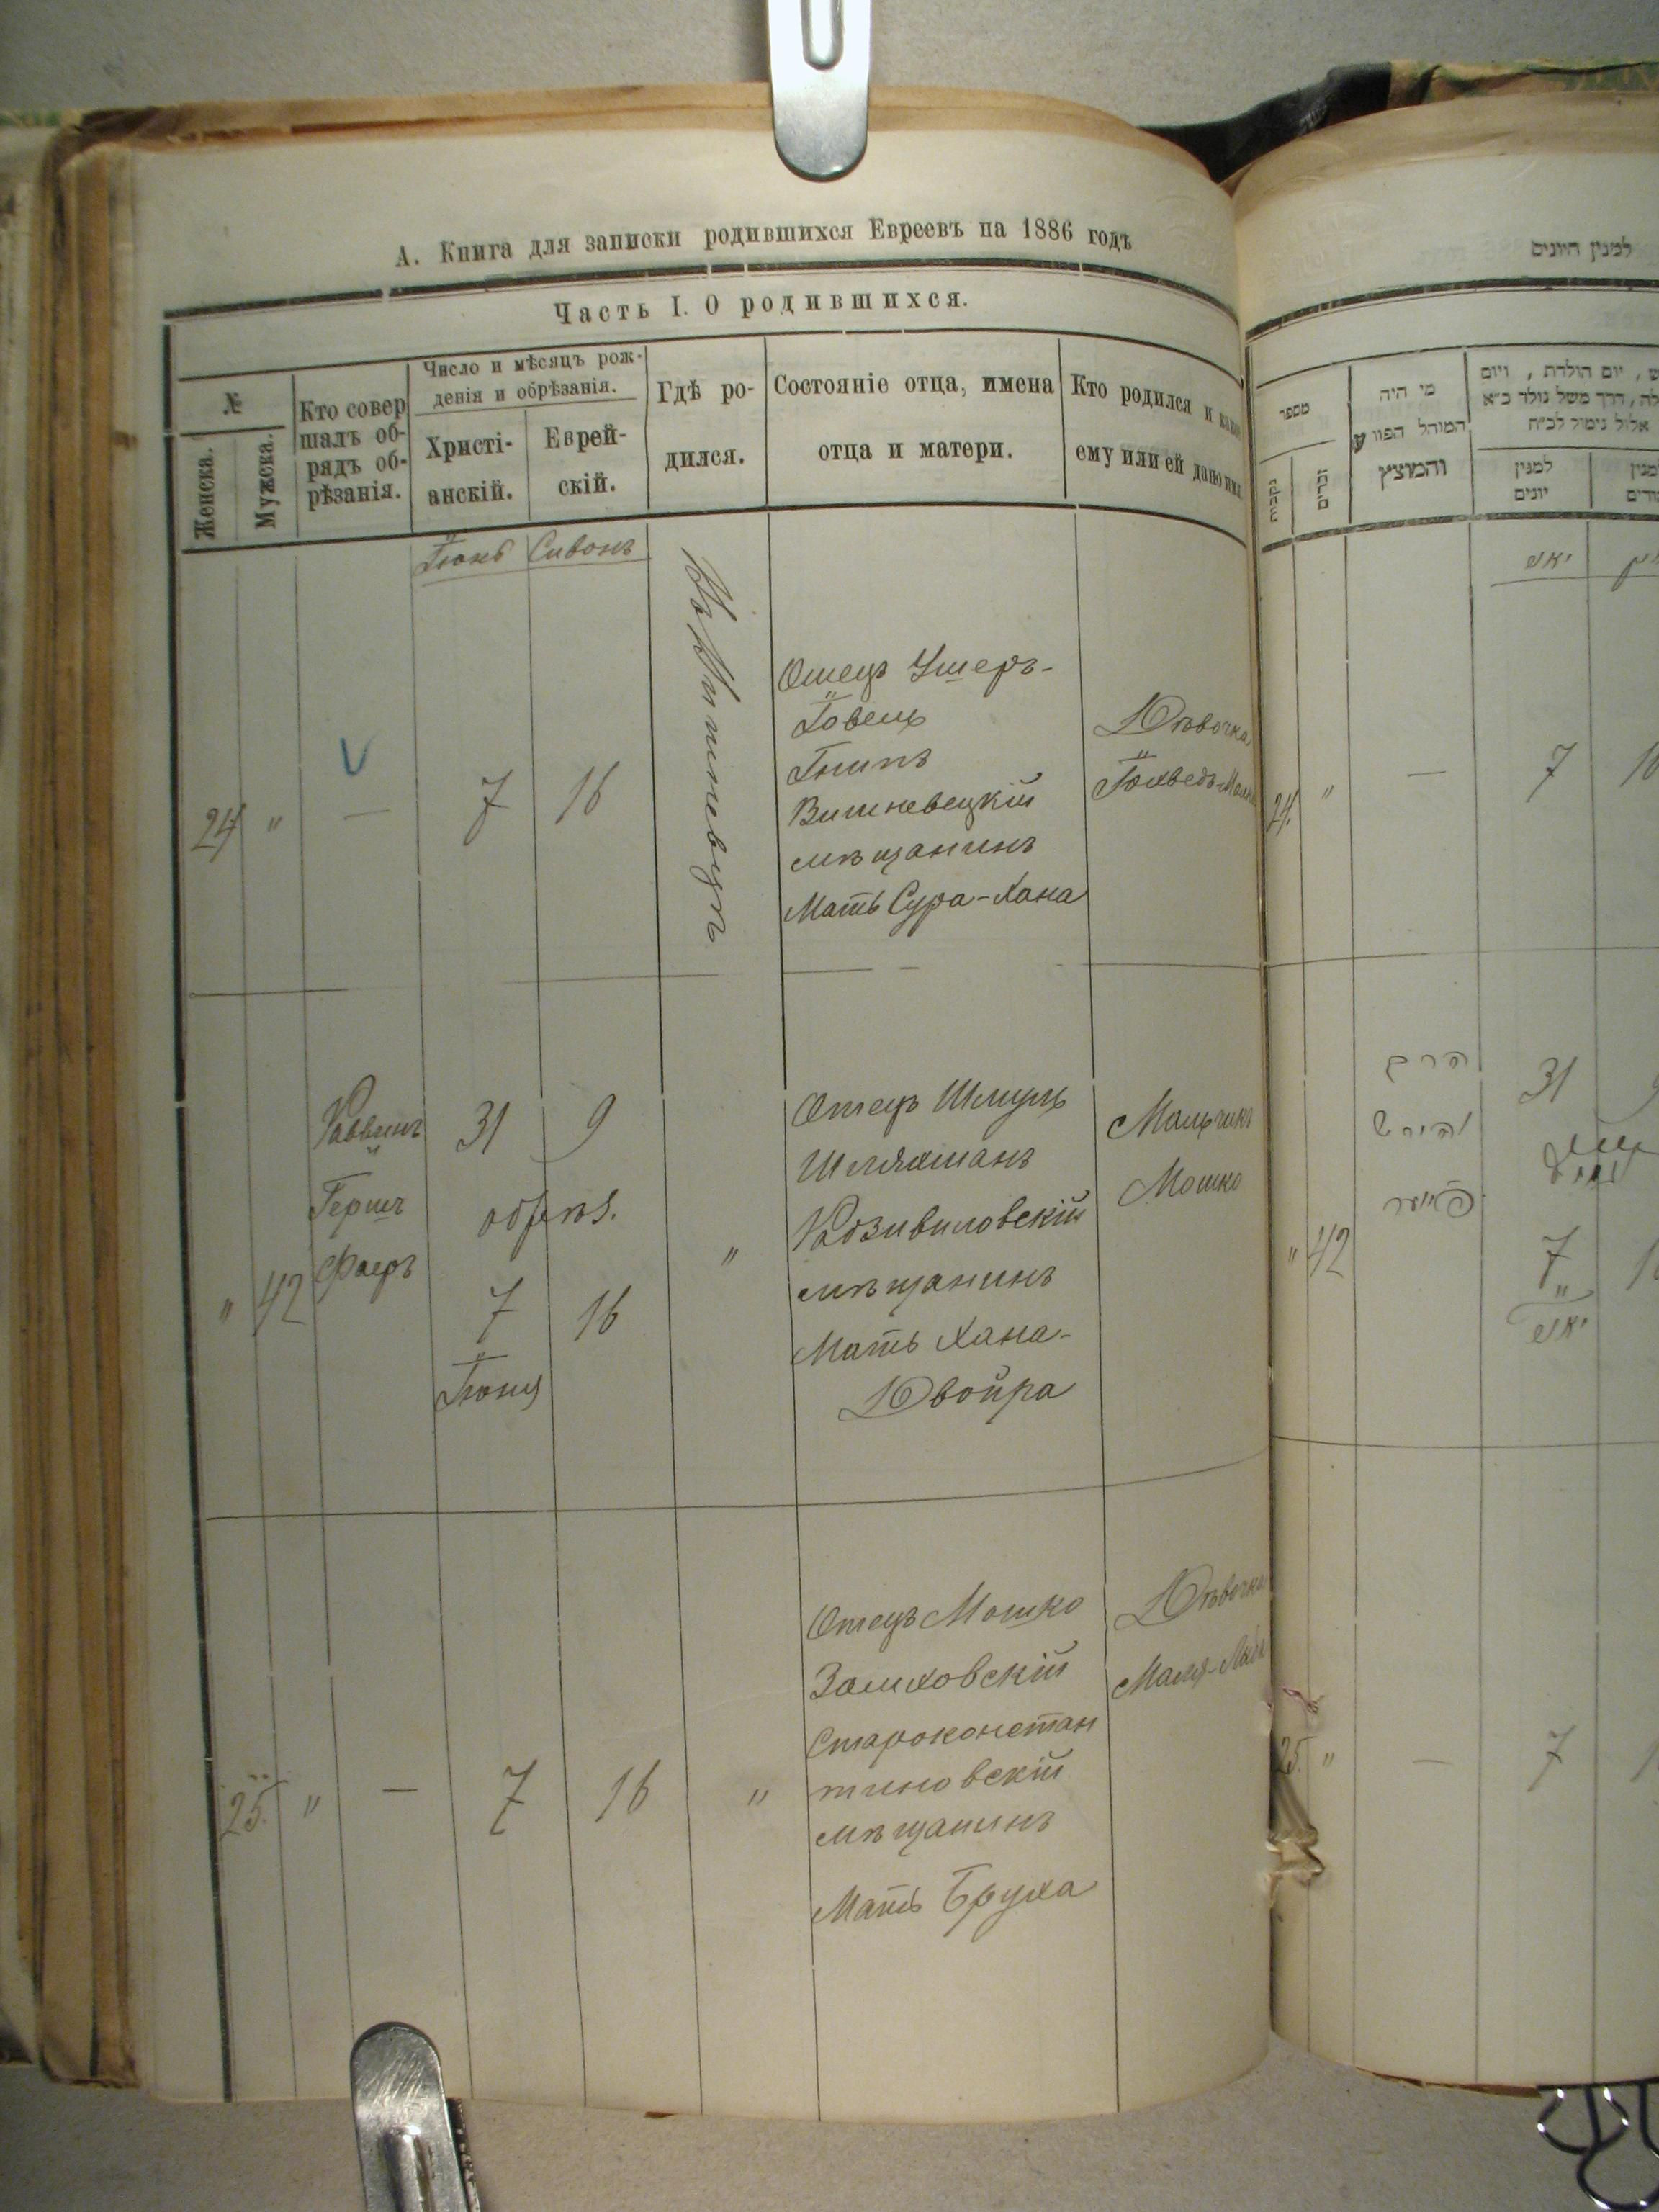 А. Книга для записки родившихся Евреевъ на 1886 годъ
Часть I. О родившихся.
№
Женска.
Мужска.
Кто совер
шалъ об-
рядъ об-
рѣзанія.
Число и мѣсяцъ рож-
денія и обрѣзанія.
Христі-
анскій.
Еврей-
скій.
Гдѣ ро-
дился.
Состояніе отца, имена
отца и матери.
Кто родился и какое
ему или ей дано имя
Іюнь Сивонъ
24 " — 7 16
Отецъ Ушеръ-
Іовель
Вишневецкій
мѣщанинъ
Мать Сура-Хана
Дѣвочка
" 42
Раввинъ
Гершъ
Фаеръ
31 9
обрѣз.
7 16
Іюня
"
Отецъ Шмуль
Шляхманъ
Радзивиловскій
мѣщанинъ
Мать Хана-
Двойра
Мальчикъ
Мошко
25. " — 7 16 "
Отецъ Мошко
Замховскій
Староконстан
тиновскій
мѣщанинъ
Мать Бруха
Дѣвочка
למנין היונים
מספר
נקבות
זכרים
מי היה
המוהל הפורע
והמוצץ
למנין
יונים
24. " — 7
" 42
הרב
הירש
פייער
31
7
25. " — 7